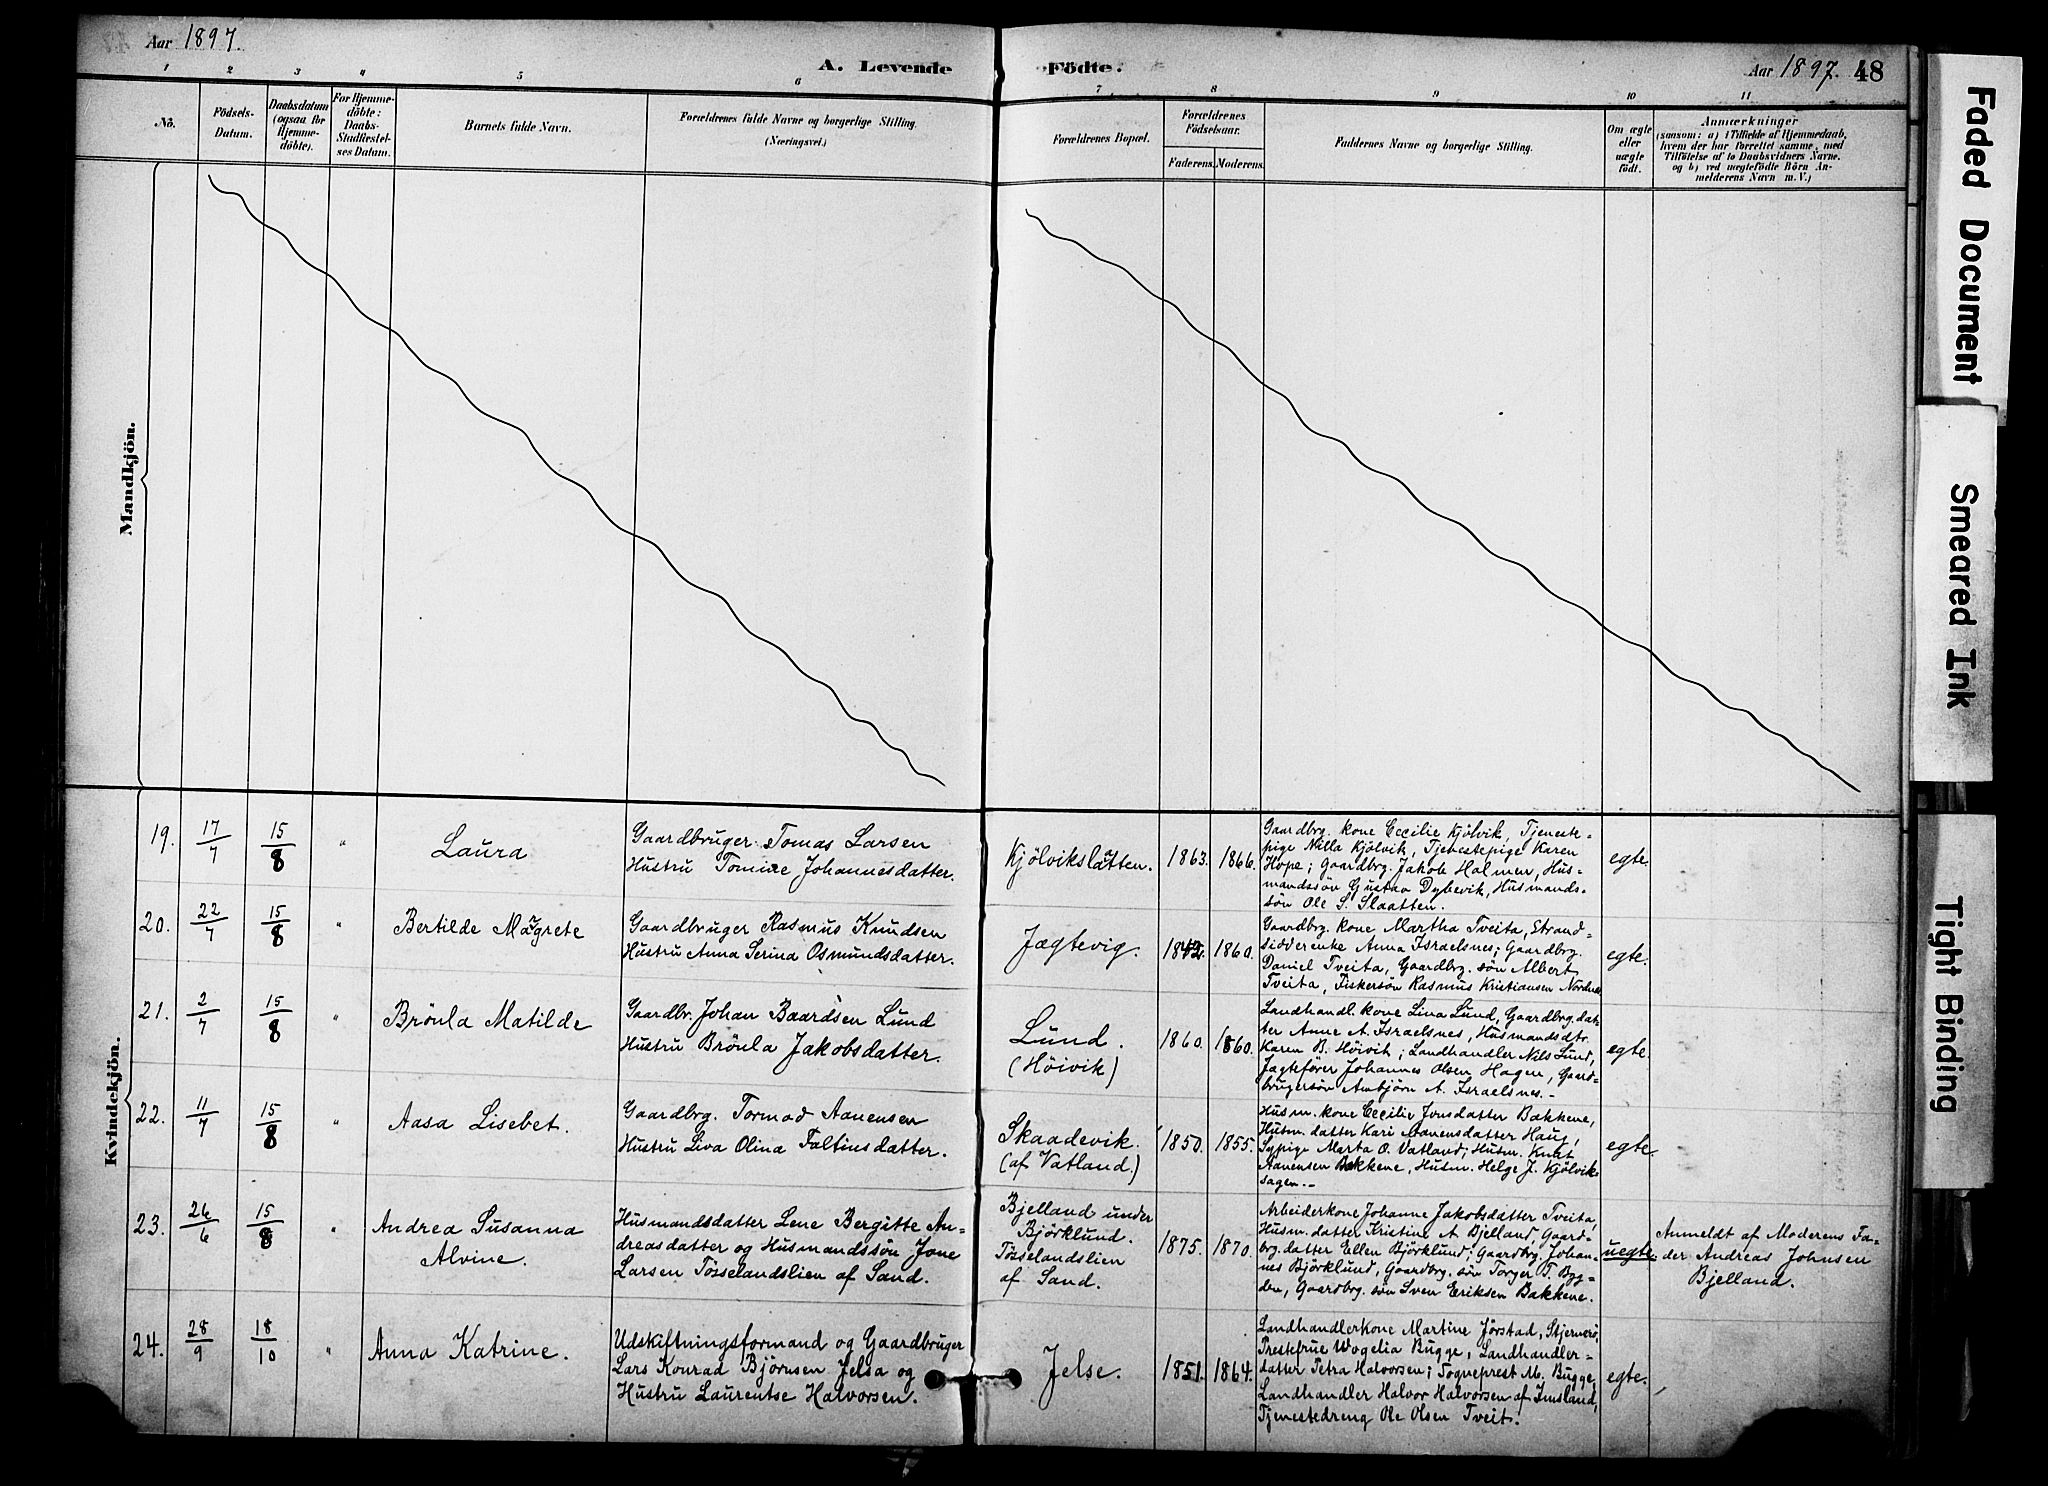 Aar 1897.
A. Levende Födte.
Aar 1897. 48
1 2 3 4 5 6 7 8 9 10 11
No.
Födsels-Datum.
Daabsdatum (ogsaa for Hjemme-döbte).
For Hjemme-döbte: Daabs-Stadfæstel-ses Datum.
Barnets fulde Navn.
Forældrenes fulde Navne og borgerlige Stilling. (Næringsvei.)
Forældrenes Bopæl.
Forældrenes Födselsaar.
Faderens. Moderens.
Faddernes Navne og borgerlige Stilling.
Om ægte eller uægte født.
Anmærkninger
(saasom: a) i Tilfælde af Hjemmedaab,
hvem der har forrettet samme, med
Tilføielse af to Daabsvidners Navne.
og b) ved uægtefödte Börn An-
melderens Navn m. V.)
Mandkjön.
Kvindekjön.
19. 17/7 15/8 "
Laura
Gaardbruger Tomas Larsen
Hustru Tomine Johannesdatter.
Kjölvikslåtten. 1863. 1866.
Gaardbrg. kone Cecilie Kjölvik, Tjeneste-
pige Nilla Kjölvik, Tjenestepige Karen
Hope; Gaardbrg. Jakob Holmen, Hus-
mandssön Gustav Dybevik, Husmands-
sön Ole S. Slaatten.
egte.
20. 22/7 15/8 "
Bertilde Magrete
Gaardbruger Rasmus Knudsen
Hustru Anna Serina Osmundsdatter.
Jægtevig. 1842. 1860.
Gaardbrg. kone Martha Tveita, Strand-
sidderenke Anna Israelsnes; Gaardbrg.
Daniel Tveita, Gaardbrg. sön Albert
Tveita, Fiskersön Rasmus Kristiansen
egte.
21. 2/7 15/8 "
Brönla Matilde
Gaardbr. Johan Baardsen Lund
Hustru Brönla Jakobsdatter.
Lund.
(Höivik)
1860. 1860.
Landhandl. kone Lina Lund, Gaardbrg. dat-
ter Anne A. Israelsnes, Husmandsdtr.
Karen B. Höivik; Landhandler Nils Lund,
Jagtefører Johannes Olsen Hagen, Gaard-
brugersön Ambjörn A. Israelsnes.-
egte.
22. 11/7 15/8 "
Aasa Lisebet.
Gaardbrg. Tormod Aanensen
Hustru Liva Olina Faltinsdatter.
Skaadevik.
(af Vatland.)
1850. 1855.
Husm. kone Cecilie Jonsdatter Bakkene,
Husm. datter Kari Aanensdatter Haug,
Sypige Marta O. Vatland; Husm. Knut
Aanensen Bakkene, Husm. Helge J. Kjölvik-
sagen.-
egte.
23. 26/6 15/8 "
Andrea Susanna
Alvine.
Husmandsdatter Lene Bergitte An-
dreasdatter og Husmandssön Jone
Larsen Tösselandslien af Sand.
Bjelland under
Björklund.
Tösselandslien
af Sand.
1875. 1870.
Arbeiderkone Johanne Jakobsdatter Tveita,
Husm. datter Kristine A. Bjelland, Gaard-
brg. datter Ellen Björklund; Gaardbrg. Johan-
nes Björklund, Gaardbrg. sön Torger T. Byg-
den, Gaardbrg. sön Sven Eriksen Bakkene.
uegte.
Anmeldt af Moderens Fa-
der Andreas Johnsen
Bjelland.
24. 28/9 18/10 "
Anna Katrine.
Udskiftningsformand og Gaardbruger
Lars Konrad Björnsen Jelsa og
Hustru Laurentse Halvorsen.
Jelse. 1851. 1864.
Landhandlerkone Martine Jörstad, Stjernerö,
Prestefrue Wogelia Bugge, Landhandler-
datter Petra Halvorsen; Sogneprest M. Bugge,
Landhandler Halvor Halvorsen af Imsland,
Tjenestedreng Ole Olsen Tveit.
egte.
Faded Document
Smeared Ink
Tight Binding